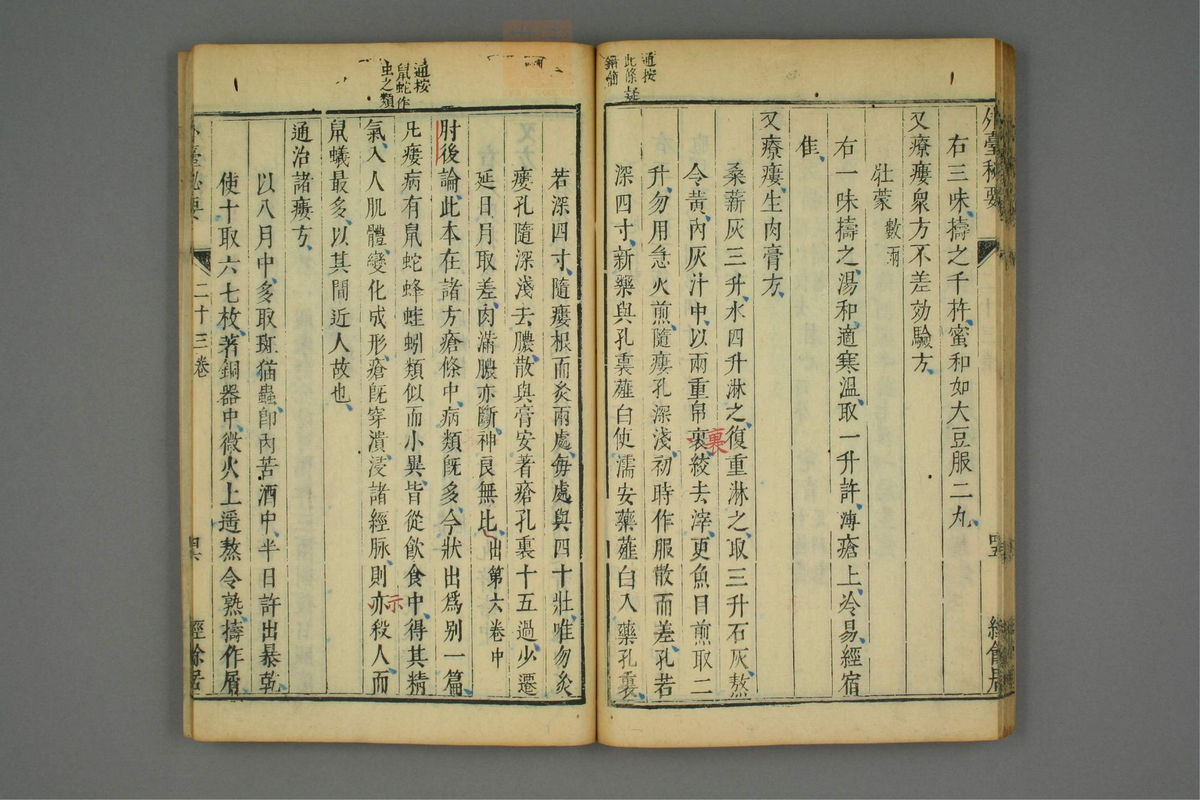 通按
此條疑
錯簡
外臺秘要
右三味、擣之千杵、蜜和如大豆服二丸、
又療瘻衆方不差効驗方、
牡蒙 數兩
右一味擣之、湯和、適寒溫、取一升許、薄瘡上、冷易、經宿
佳、
又療瘻、生肉膏方、
桑薪灰三升、水四升淋之、復重淋之、取三升石灰、熬
令黄、內灰汁中、以兩重帛裹絞去滓、更魚目煎取二
裹
升、勿用急火煎、隨瘻孔深淺、初時作服散而差、孔若
深四寸、新藥與孔裏、薤白使濡、安藥薤白入藥孔裏、
若深四寸、隨瘻根而灸兩處、每處與四十壯、唯勿灸
瘻孔、隨深淺去膿、散與膏安著瘡孔裏、十五過、少遷
延日月取差、肉滿膿亦斷、神良無比、出第六卷中
肘後論、此本在諸方瘡條中、病類旣多、今狀出爲别一篇、
通按
鼠蛇作
虫之類
凡瘻病有鼠蛇蜂蛙蚓類似而小異、皆從飲食中、得其精
氣、入人肌體、變化成形、瘡旣穿潰、浸諸經脉、則亦殺人、而
示
鼠蟻最多、以其間近人故也、
通治諸瘻方、
以八月中、多取斑猫蟲、卽內苦酒中、半日許出暴乾、
使十取六七枚、著銅器中、微火上遥熬令熟、擣作屑、
二十三卷
經餘居